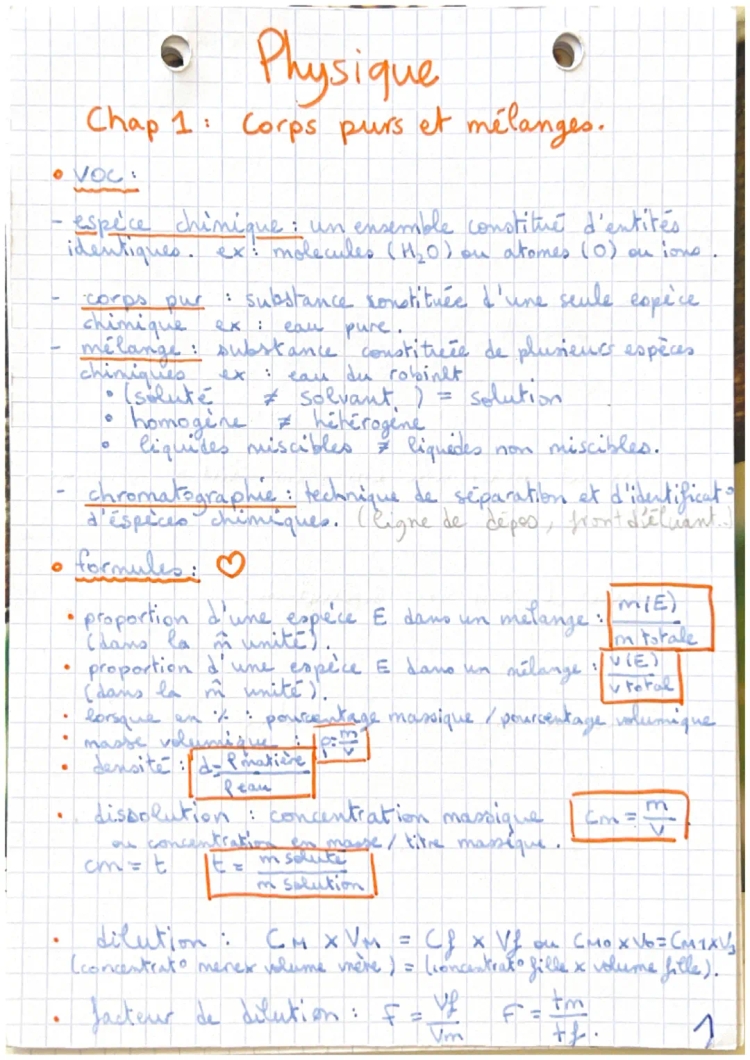 Physique
Chap 1 : Corps purs et mélanges.
• VOC :
- espèce chimique : un ensemble constitué d'entités
identiques. ex : molecules (H₂O) ou atomes (O) ou ions.
- corps pur : substance constituée d'une seule espèce
chimique ex : eau pure.
- mélange : substance constituée de plusieurs espèces
chimiques ex : eau du robinet
• (soluté ≠ solvant) = solution
• homogène ≠ hétérogène
• liquides miscibles ≠ liquides non miscibles.
- chromatographie : technique de séparation et d'identificat°
d'éspèces chimiques. (ligne de dépos, front d'éluant..)
• formules : ♡
• proportion d'une espéce E dans un mélange : m(E) / m totale
(dans la m̂ unité).
• proportion d'une espèce E dans un mélange : v(E) / v total
(dans la m̂ unité).
• lorsque en % : pourcentage massique / pourcentage volumique
• masse volumique : ρ = m/v
• densité : d = ρ matière / ρ eau
• dissolution : concentration massique Cm = m/V
ou concentration en masse / titre massique.
cm = t t = m soluté / m solution
• dilution : CM x VM = Cf x Vf ou CM0 x V0 = CM1 x V1
(concentrat° mere x volume mère) = (concentrat° fille x volume fille).
• facteur de dilution : F = Vf/Vm F = tm/tf.
1